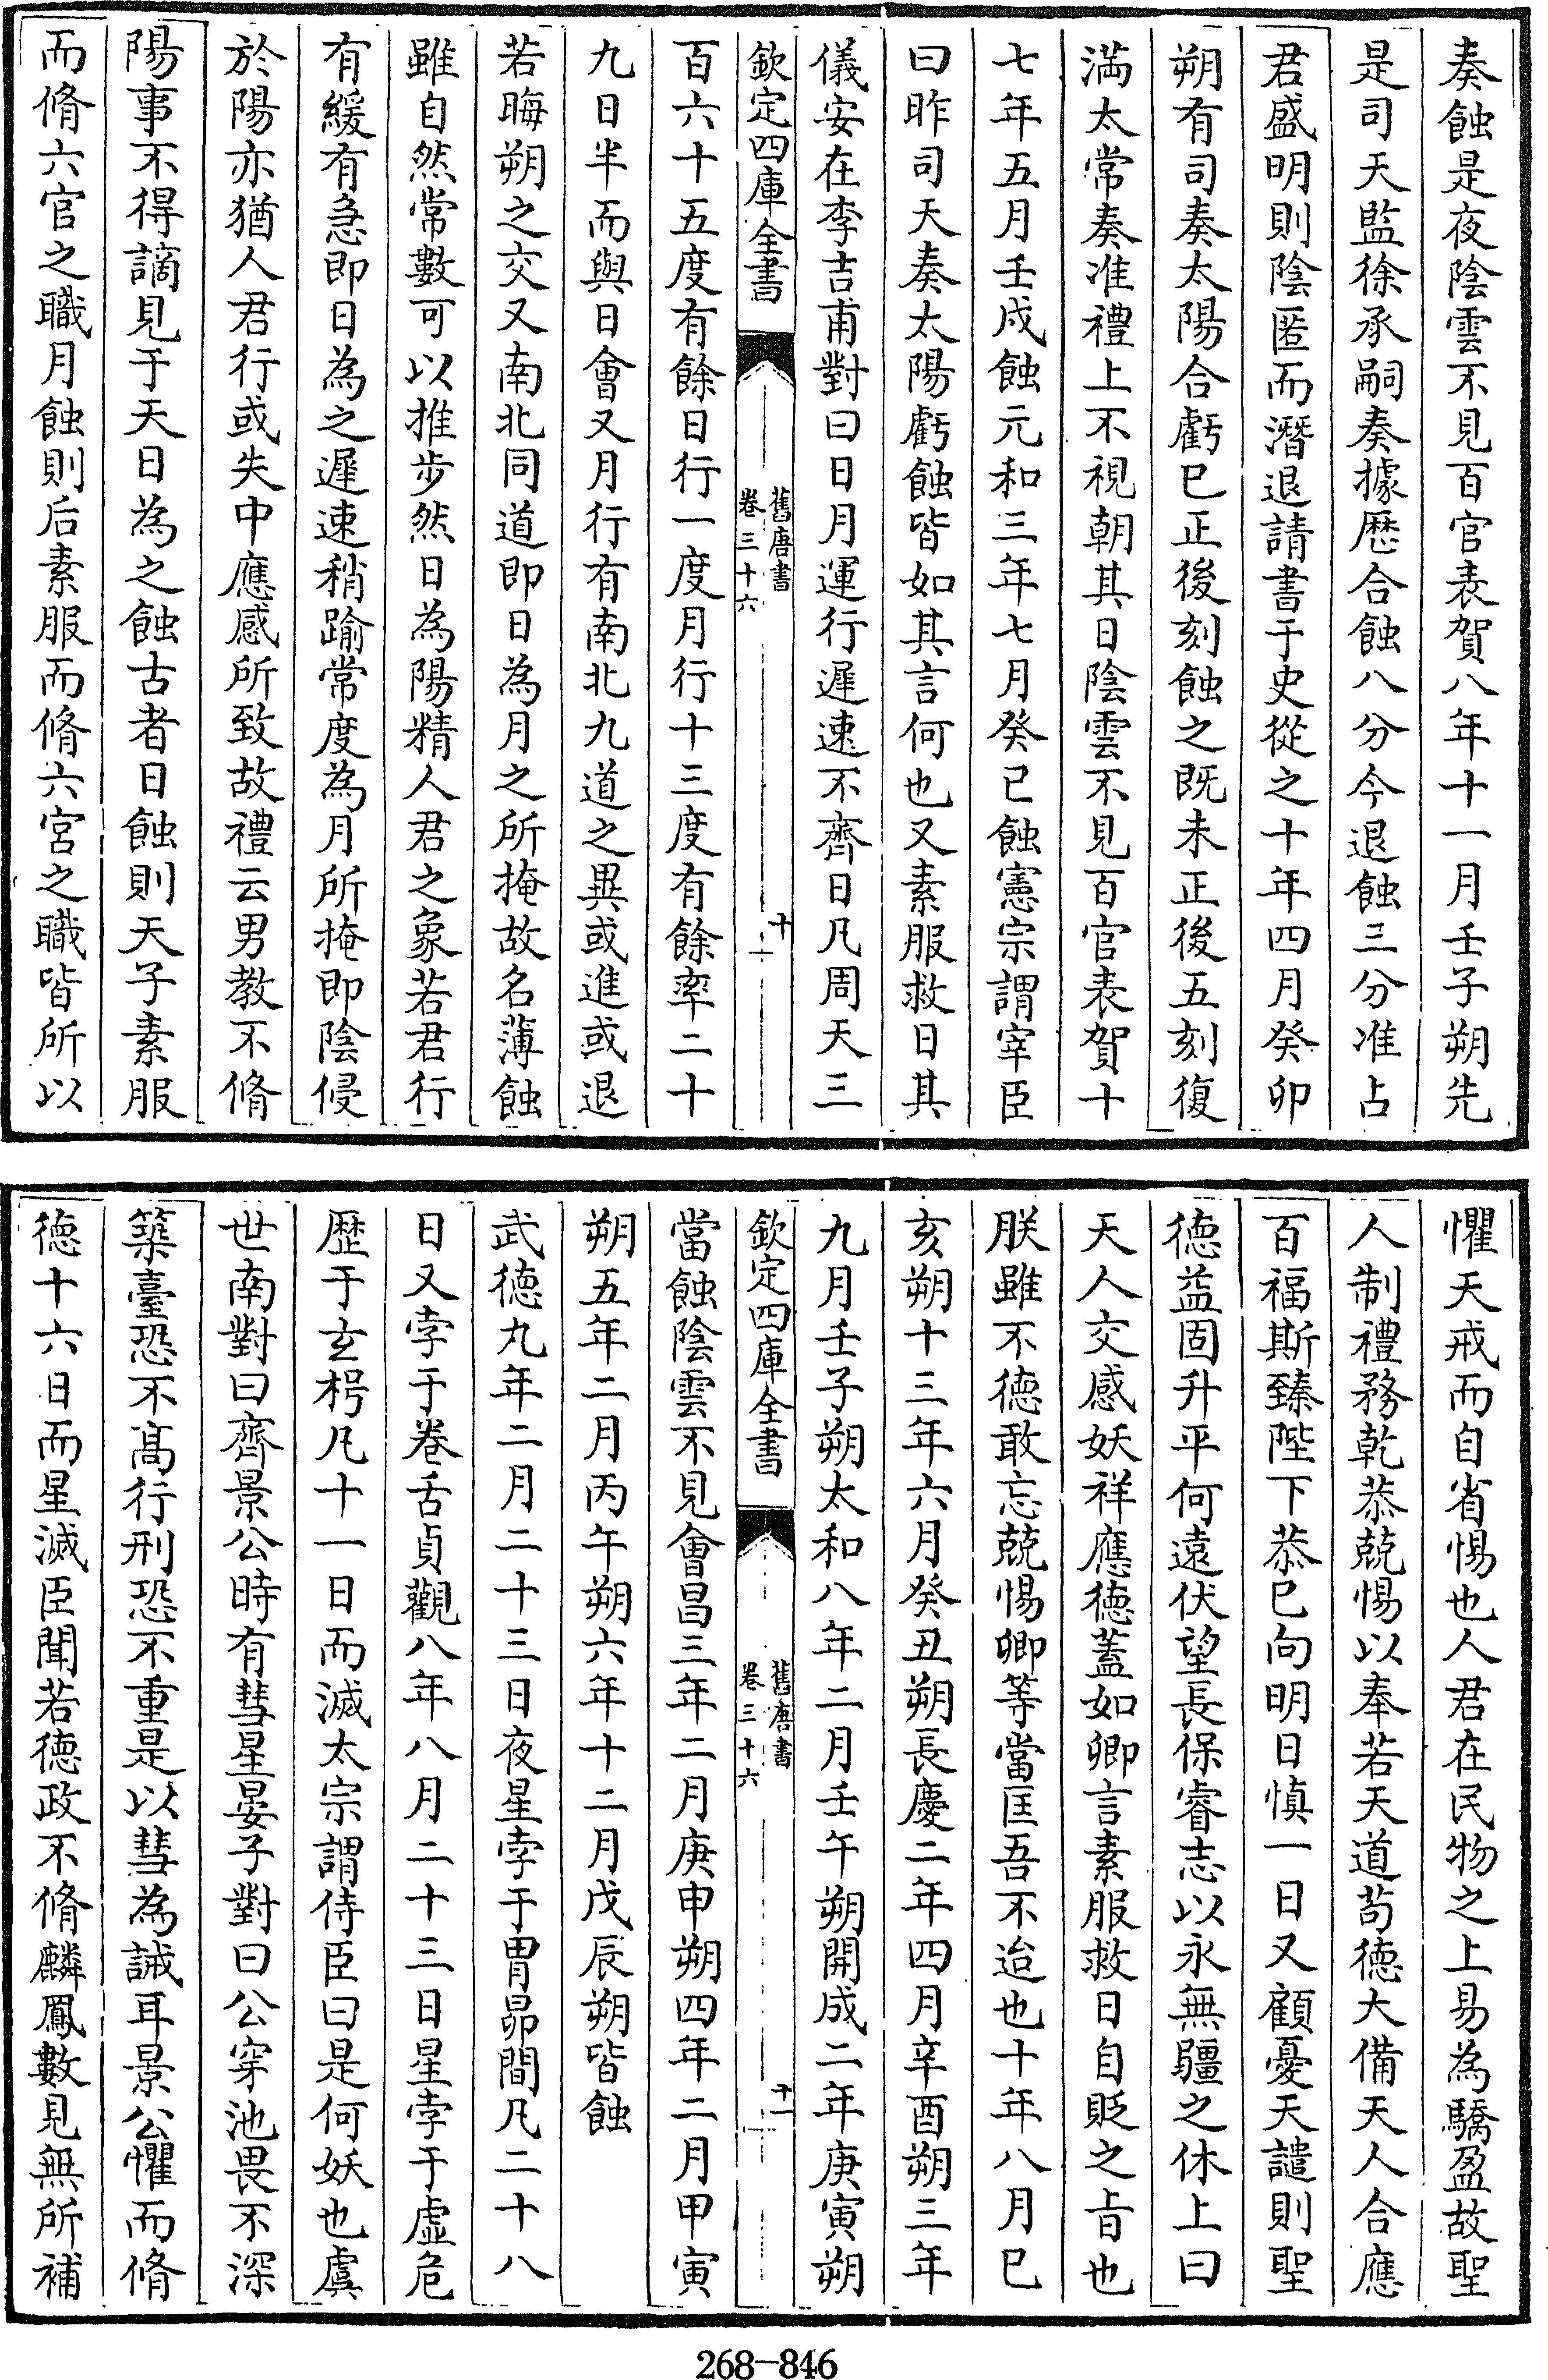 奏蝕是夜陰雲不見百官表賀八年十一月壬子朔先
是司天監徐承嗣奏據歴合蝕八分今退蝕三分准占
君盛明則陰匿而潛退請書于史從之十年四月癸卯
朔有司奏太陽合虧巳正後刻蝕之既未正後五刻復
滿太常奏准禮上不視朝其日陰雲不見百官表賀十
七年五月壬戍蝕元和三年七月癸巳蝕憲宗謂宰臣
曰昨司天奏太陽虧蝕皆如其言何也又素服救日其
儀安在李吉甫對曰日月運行遲速不齊日凡周天三
欽定四庫全書
舊唐書
卷三十六
十一
百六十五度有餘日行一度月行十三度有餘率二十
九日半而與日會又月行有南北九道之異或進或退
若晦朔之交又南北同道即日為月之所掩故名薄蝕
雖自然常數可以推步然日為陽精人君之象若君行
有緩有急即日為之遲速稍踰常度為月所掩即陰侵
於陽亦猶人君行或失中應感所致故禮云男教不脩
陽事不得謫見于天日為之蝕古者日蝕則天子素服
而脩六官之職月蝕則后素服而脩六宮之職皆所以
懼天戒而自省惕也人君在民物之上易為驕盈故聖
人制禮務乾恭兢惕以奉若天道茍德大備天人合應
百福斯臻陛下恭已向明日慎一日又顧憂天譴則聖
德益固升平何遠伏望長保睿志以永無疆之休上曰
天人交感妖祥應德蓋如卿言素服救日自貶之㫖也
朕雖不德敢忘兢惕卿等當匡吾不迨也十年八月已
亥朔十三年六月癸丑朔長慶二年四月辛酉朔三年
九月壬子朔太和八年二月壬午朔開成二年庚寅朔
欽定四庫全書
舊唐書
卷三十六
十二
當蝕陰雲不見會昌三年二月庚申朔四年二月甲寅
朔五年二月丙午朔六年十二月戊辰朔皆蝕
武德九年二月二十三日夜星孛于胃昴間凡二十八
日又孛于卷舌貞觀八年八月二十三日星孛于虛危
歴于玄枵凡十一日而滅太宗謂侍臣曰是何妖也虞
世南對曰齊景公時有彗星晏子對曰公穿池畏不深
築臺恐不髙行刑恐不重是以彗為誡耳景公懼而脩
德十六日而星滅臣聞若德政不脩麟鳳數見無所補
268-846